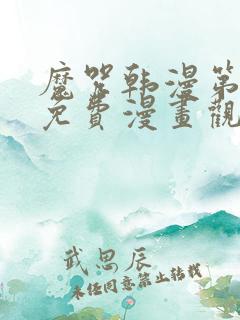 魔咒韩漫第
免費漫畫觀
武思辰
未经同意禁止转载